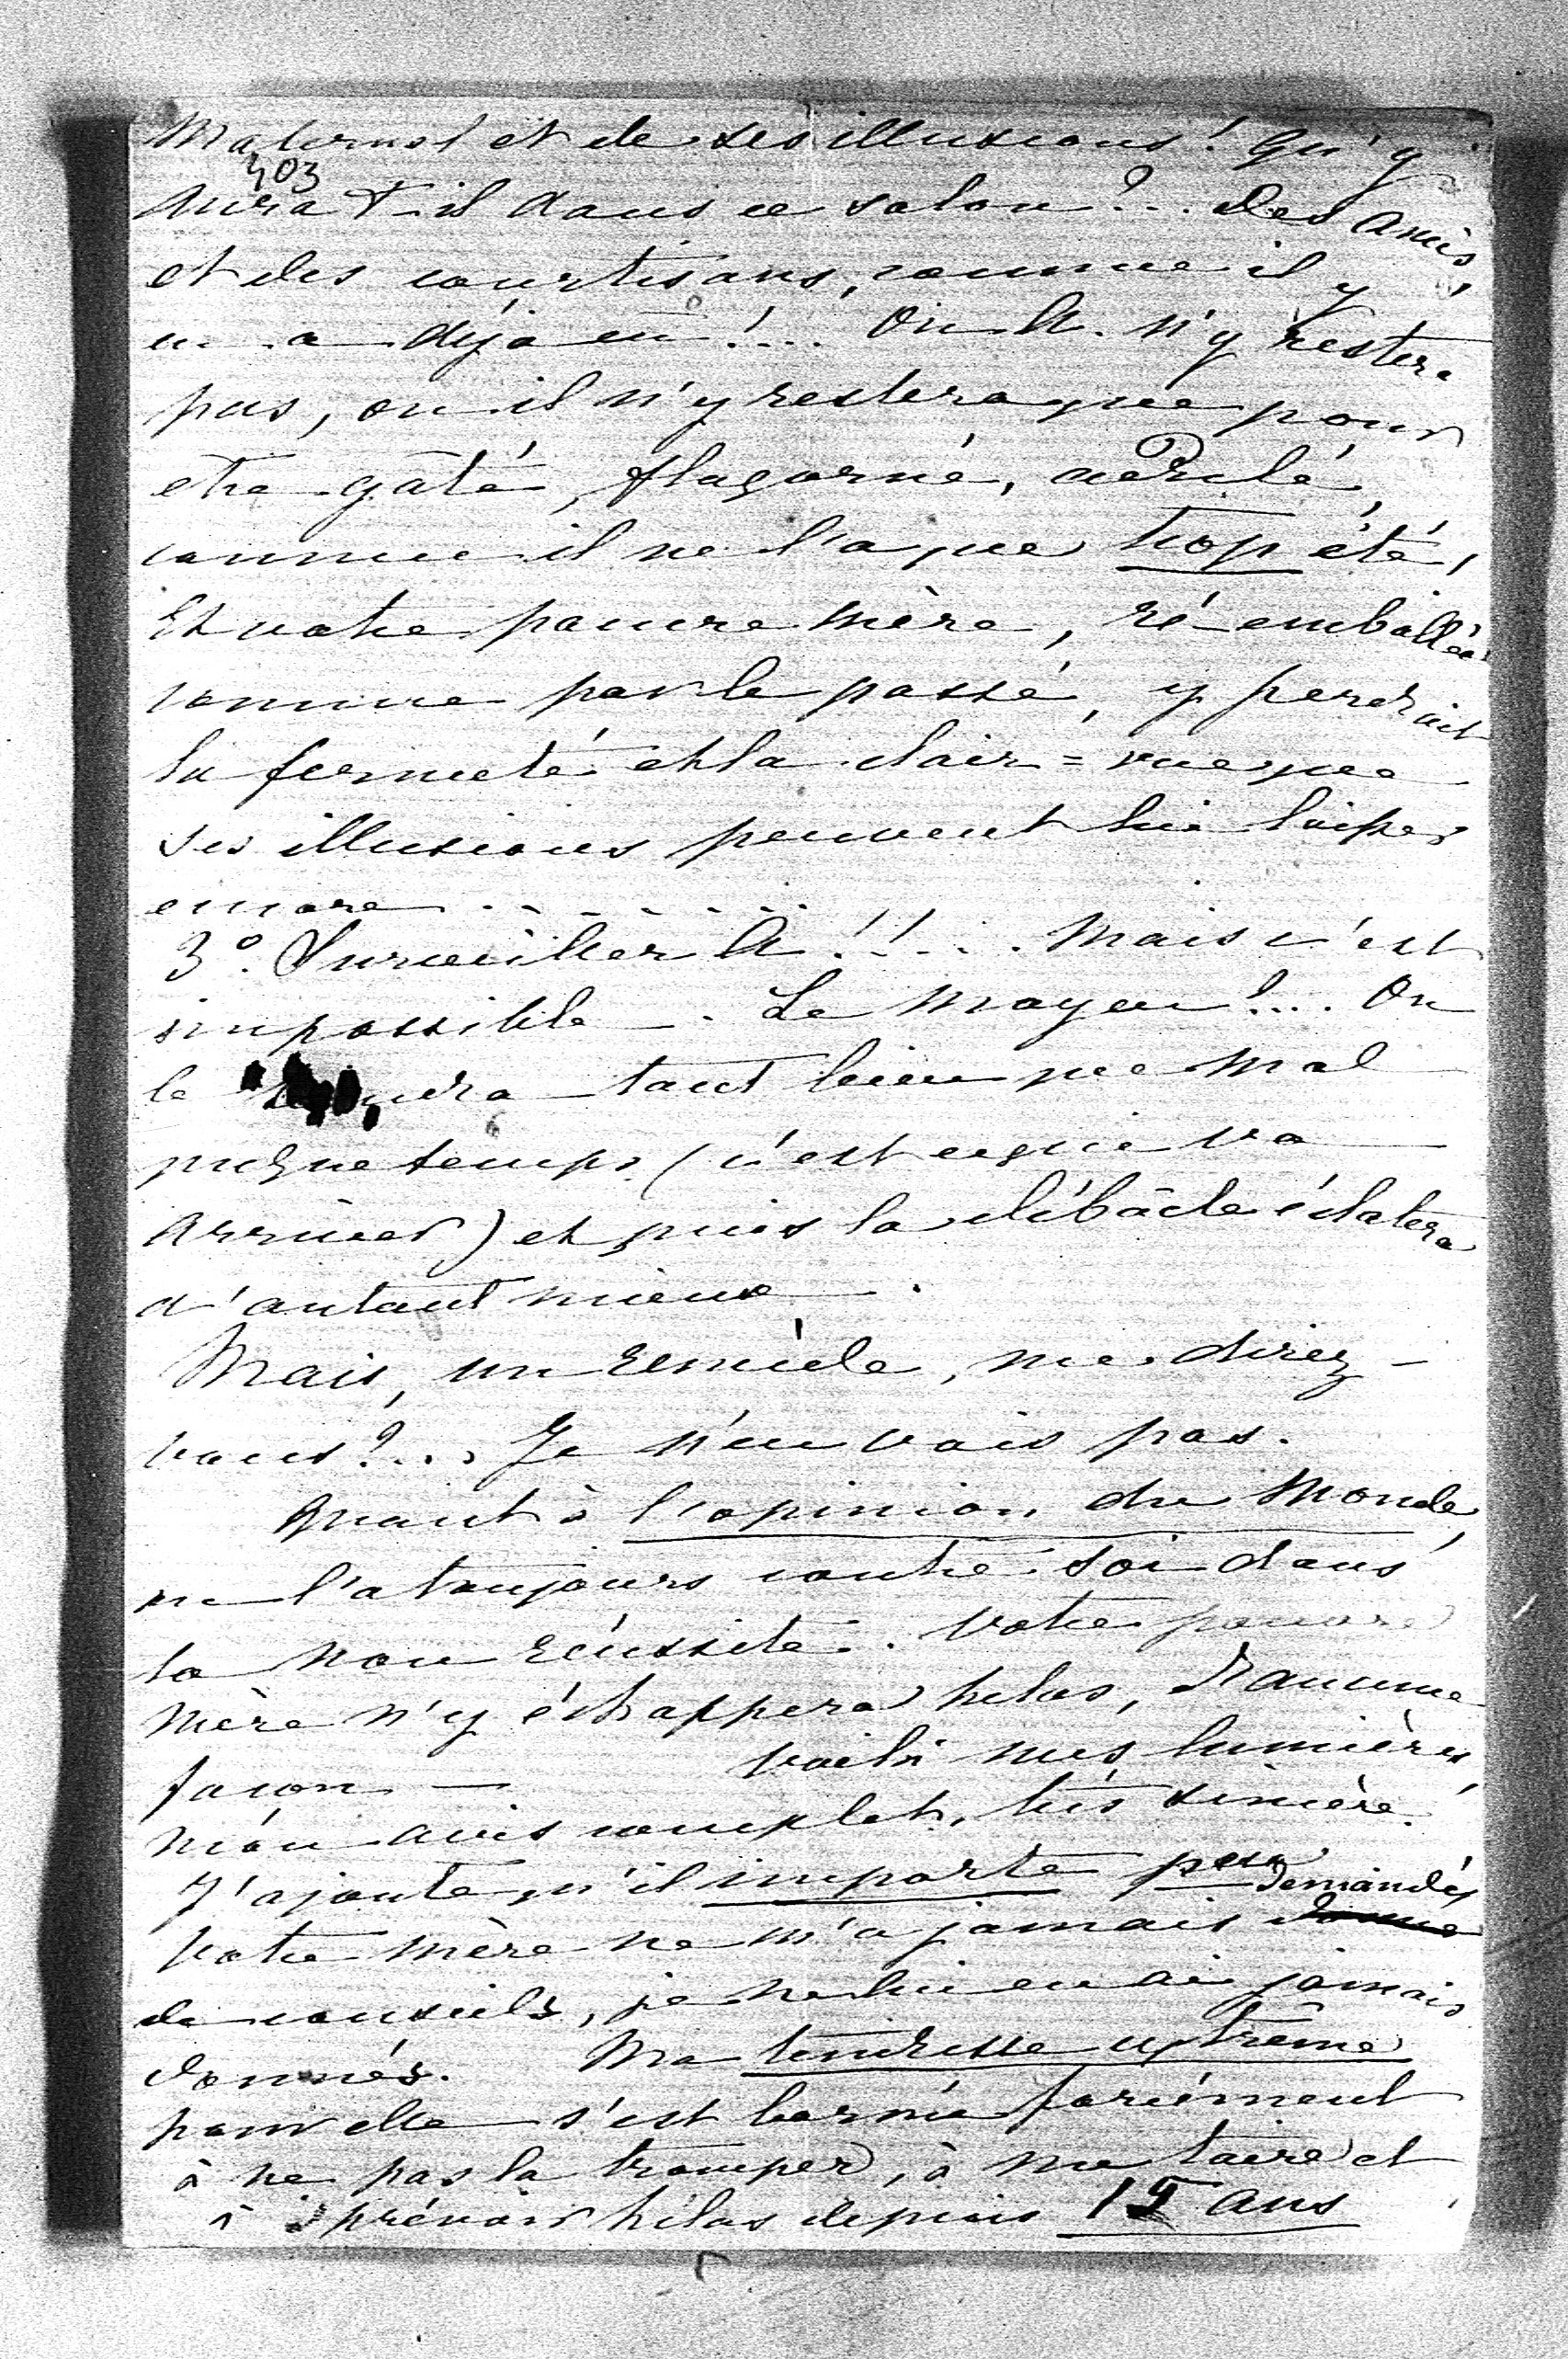 Maternel et de ses illusions ! Qu'y
403
Aura t-il dans ce salon ?.. Des amis,
et des courtisans, comme il y
en a déjà eu !... Ou A. n'y restera
pas, ou il n'y restera que pour
être gâté, flagorné, adulé,
comme il ne l'a que trop été,
Et votre pauvre mère, ré-emballée
comme par le passé, y perdrait
la fermeté et la clair=vue que
ses illusions peuvent lui laisser
encore . - - - - . ..
3º. Surveiller A !!... Mais c'est
impossible —. Le moyen !... On
le tant bien que mal
quque temps (c'est ce qui va
arriver) et puis la débâcle éclatera
d'autant mieux —.
Mais, un remède, me direz-
vous ?... Je n'en vois pas.
Quant à l'opinion du Monde,
on l'a toujours contre soi dans
la non réussite. Votre pauvre
mère n'y échappera hélas, d'aucune
façon — Voilà mes lumières,
mon avis complet, très sincère.
J'ajoute qu'il importe peu
demandés
Votre mère ne m'a jamais donné
de conseils, je ne lui en ai jamais
donnés. Ma tendresse extrême
pour elle s'est bornée forcément
à ne pas la tromper, à me taire et
à prévoir hélas depuis 15 ans